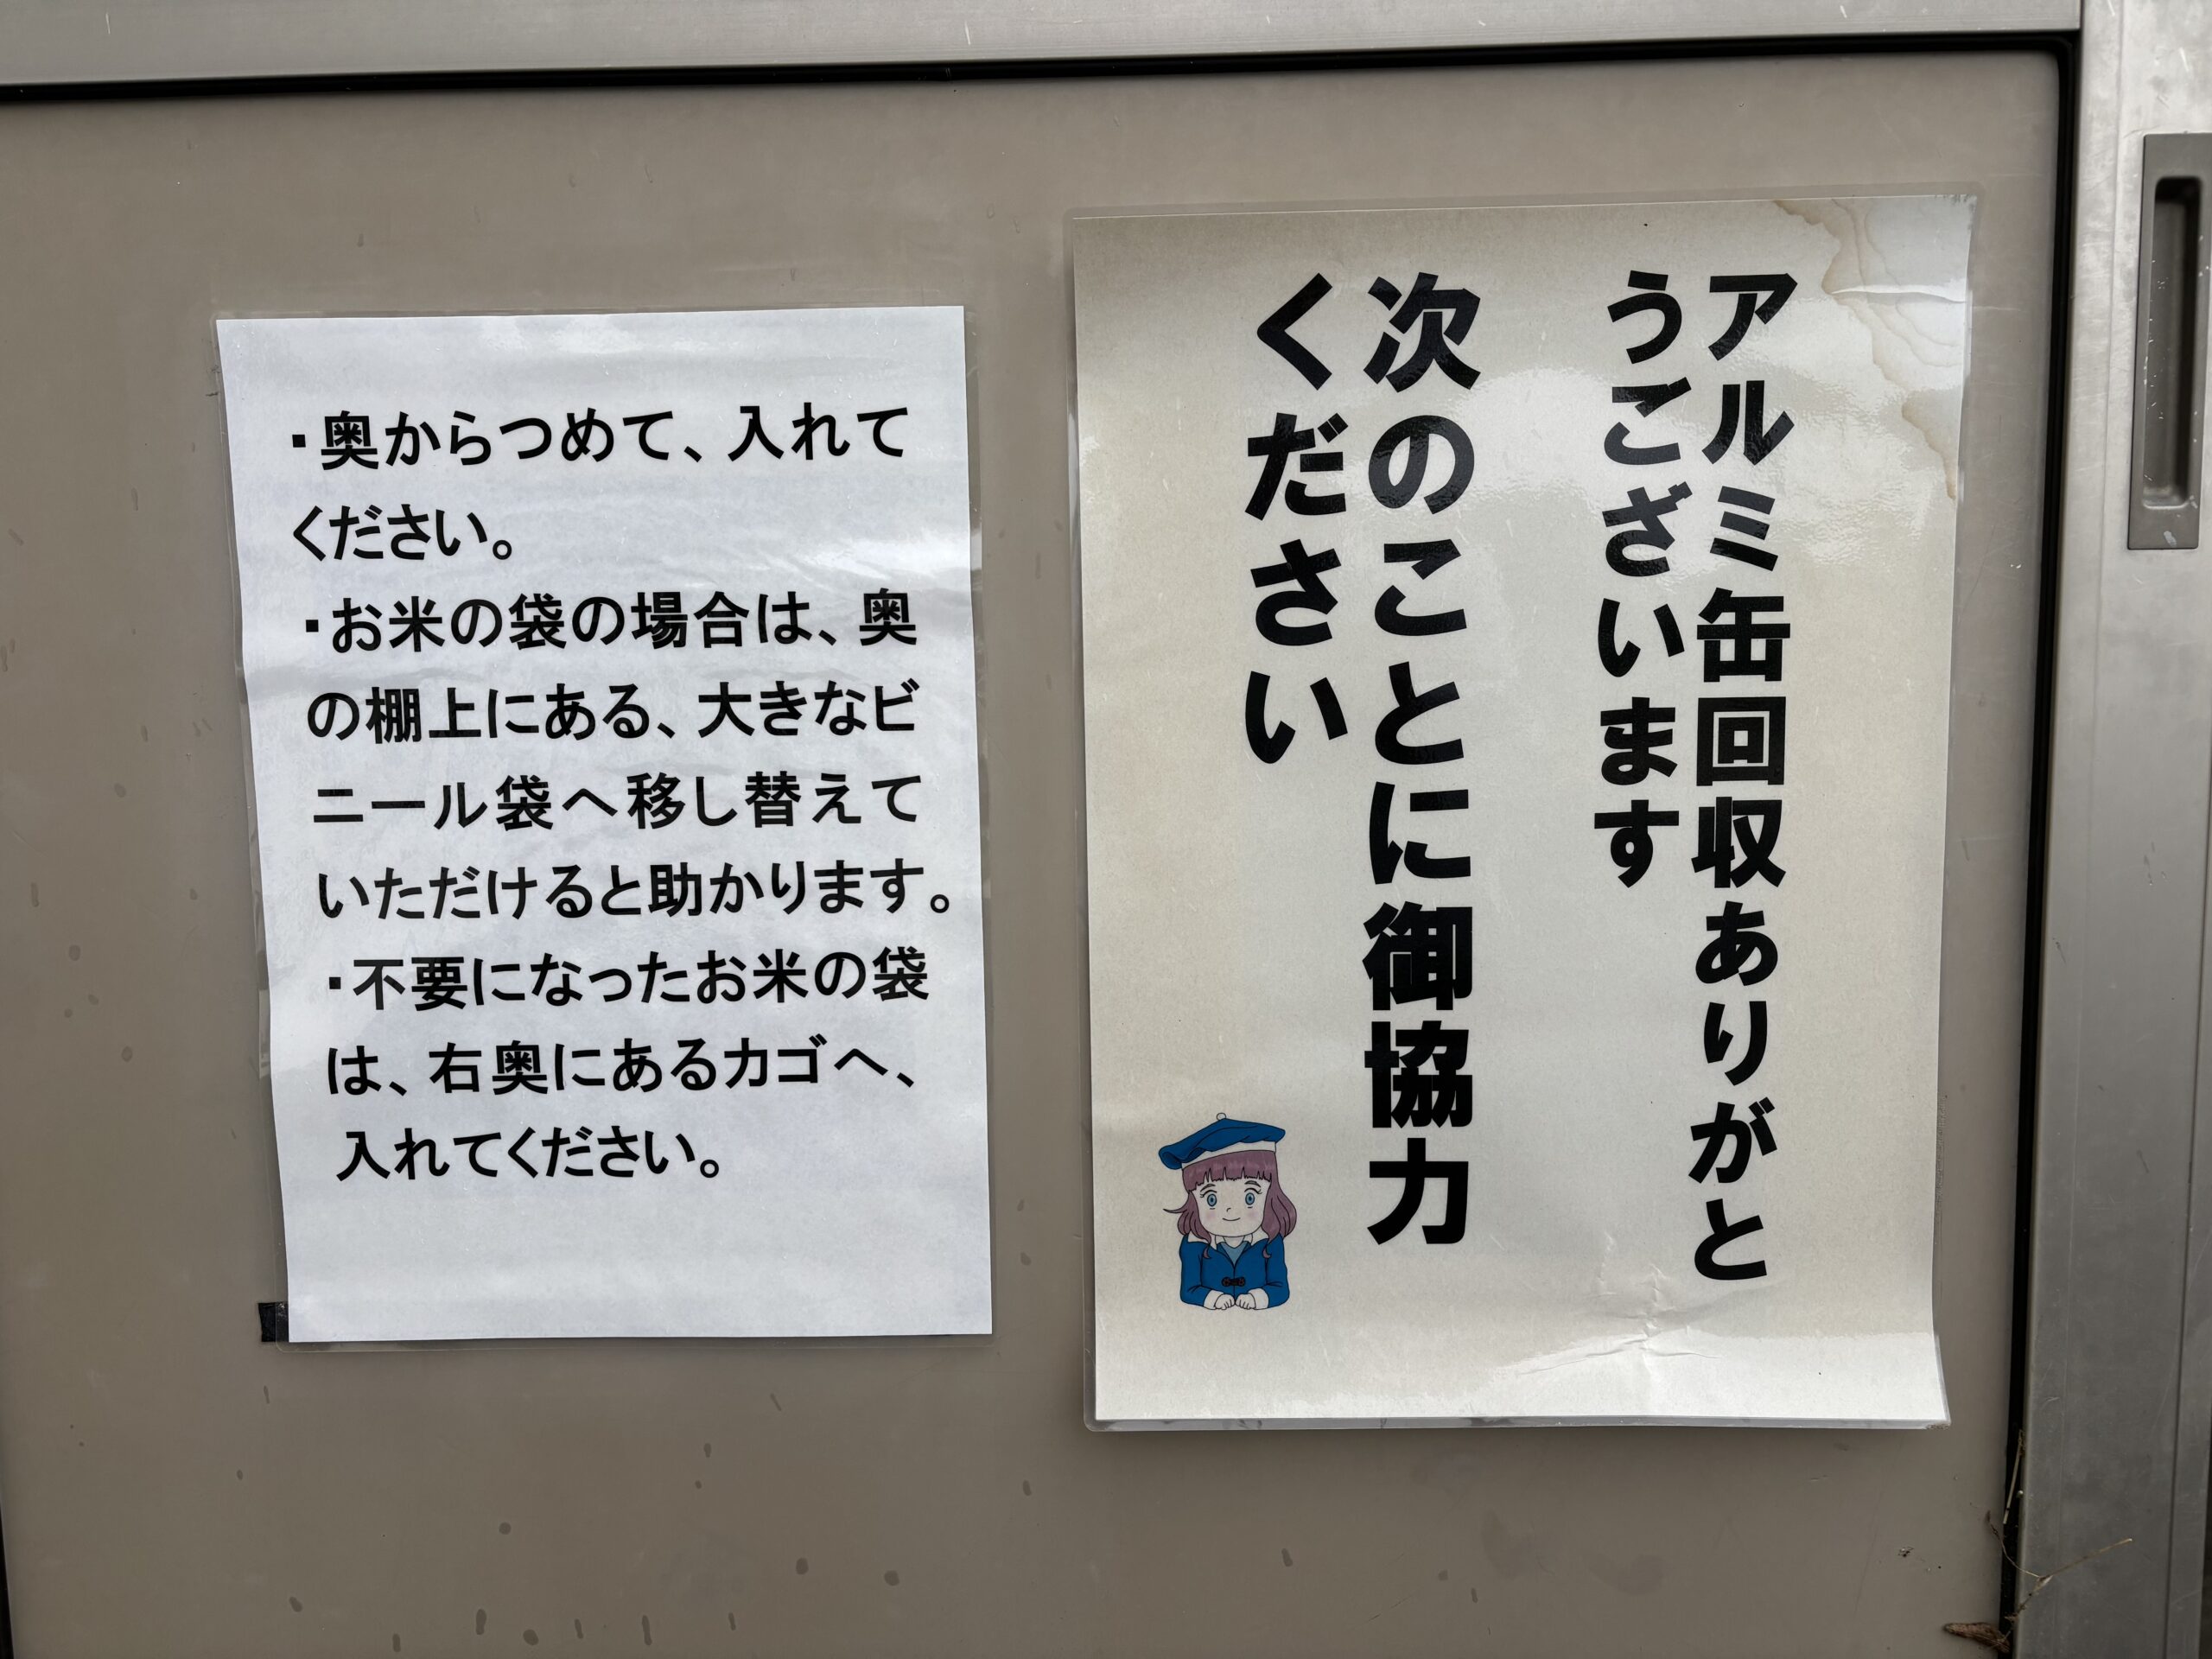 アルミ缶回収ありがと
うございます
次のことに御協力
ください
・奥からつめて、入れて
ください。
・お米の袋の場合は、奥
の棚上にある、大きなビ
ニール袋へ移し替えて
いただけると助かります。
・不要になったお米の袋
は、右奥にあるカゴへ、
入れてください。